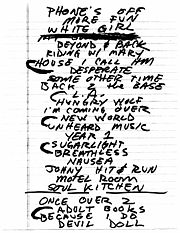 PHONE'S OFF
MORE FUN
WHITE GIRL
BEYOND & BACK
RIDING W/ MARY
HOUSE I CALL HIM
DESPERATE
SOME OTHER TIME
BACK 2 the BASE
L.A.
HUNGRY WOLF
I'M COMING OVER
NEW WORLD
UNHEARD MUSIC
YEAR 1
SUGARLIGHT
BREATHLESS
NAUSEA
JOHNY HIT & RUN
MOTEL ROOM
SOUL KITCHEN
ONCE OVER 2
ADULT BOOKS
BECAUSE I DO
DEVIL DOLL